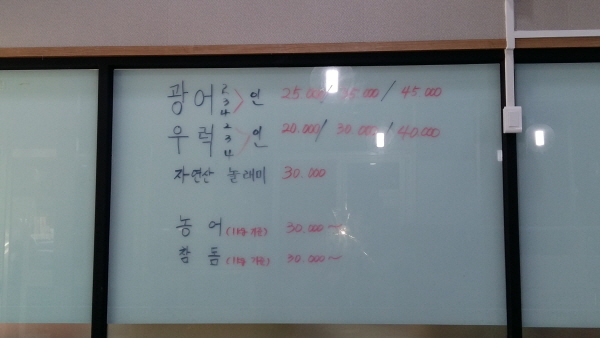 광어 2 3 4 > 인 25.000 / 35.000 / 45.000
우럭 2 3 4 > 인 20.000 / 30.000 / 40.000
자연산 놀래미 30.000
농어 (1kg 기준) 30.000~
참돔 (1kg 기준) 30.000~